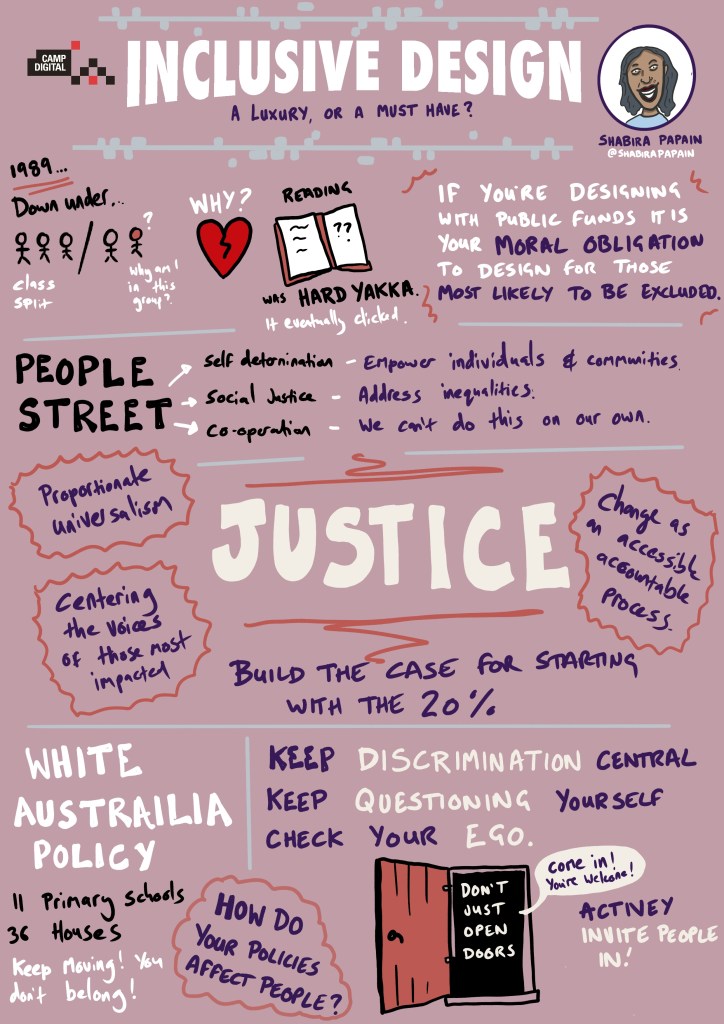 CAMP
DIGITAL
INCLUSIVE DESIGN
A LUXURY, OR A MUST HAVE?
SHABIRA PAPAIN
@SHABIRAPAPAIN
1989...
Down under...
?
class
split
why am I
in this
group?
WHY?
READING
??
was HARD YAKKA.
It eventually clicked.
IF YOU'RE DESIGNING
WITH PUBLIC FUNDS IT IS
YOUR MORAL OBLIGATION
TO DESIGN FOR THOSE
MOST LIKELY TO BE EXCLUDED.
PEOPLE
STREET
Self determination - Empower individuals & communities.
Social Justice - Address inequalities.
Co-operation - We can't do this on our own.
Proportionate
universalism
JUSTICE
Change as
an accessible
accountable
process.
Centering
the voices
of those most
impacted
BUILD THE CASE FOR STARTING
WITH THE 20%
WHITE
AUSTRAILIA
POLICY
11 Primary schools
36 Houses
Keep Moving! You
don't belong!
HOW DO
YOUR POLICIES
AFFECT PEOPLE?
KEEP DISCRIMINATION CENTRAL
KEEP QUESTIONING YOURSELF
CHECK YOUR EGO.
DON'T
JUST
OPEN
DOORS
come in!
You're welcome!
ACTIVEY
INVITE PEOPLE
IN!